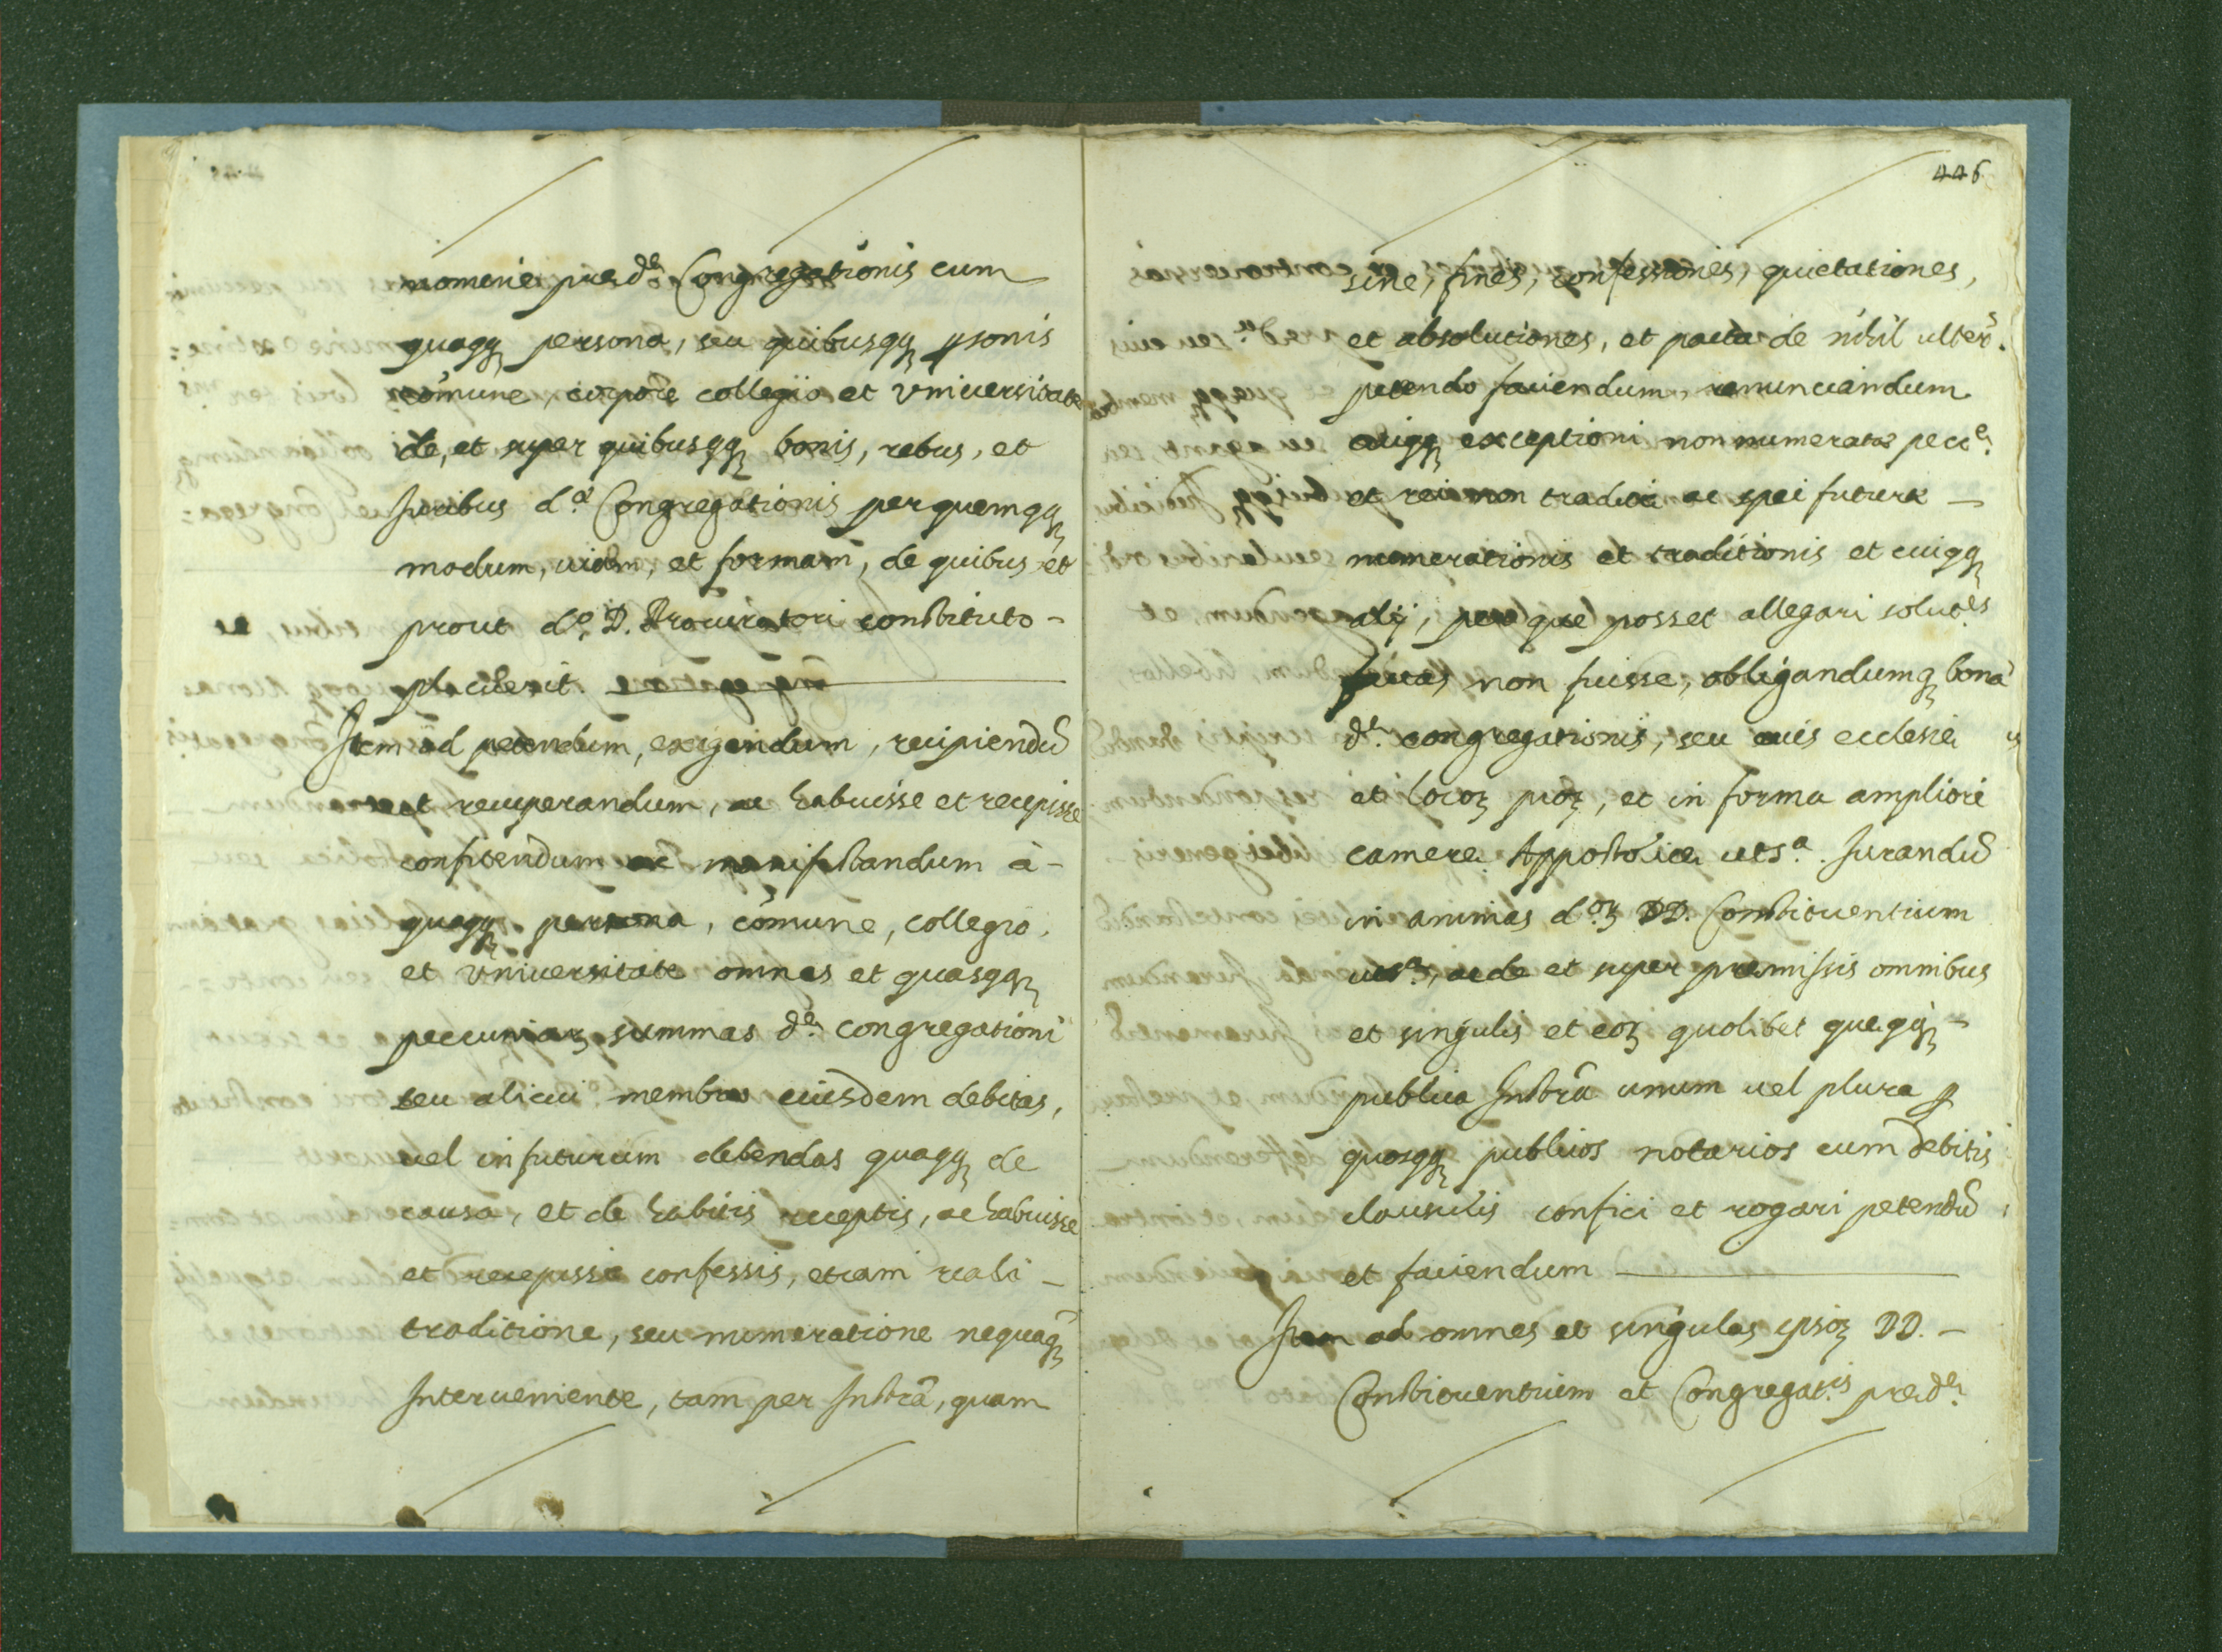 nomine præd.ę Congregationis cum
quaqɜ persona, seu quibusqɜ ꝑsonis
com̃une, corpore collegio et Vniuersitate
de, et super quibusqɜ bonis, rebus, et
Juribus d.ę Congregationis per quemqɜ
modum, uiam, et formam, de quibus et
prout d.o D. Procuratori constituto -
placuerit.
Item ad petendum, exigendum, recipiendũ
et recuperandum, ac habuisse et recepisse
confitendum ac manifestandum à -
quaqɜ persona, com̃une, collegio,
et Vniuersitate omnes et quasqɜ
pecuniaꝝ summas d.ę congregationi
seu alicui membro eiusdem debitas,
uel in futurum debendas quaqɜ de
causa, et de habitis receptis, ac habuisse
et recepisse confessis, etiam reali -
traditione, seu numeratione nequaqɜ̃
Interueniente, tam per Instrã, quam
446
sine, fines, confessiones, quietationes,
et absolutiones, et pacta de nihil ulter.s
petendo faciendum, renunciandum
cuiqɜ exceptioni non numeratæ pecc.ę
et rei non traditæ ac spei futuræ -
numerationis et traditionis et cuiqɜ
alij, per que posset allegari solut.es
non fuisse, obligandumqɜ bona
d.ę congregationis, seu eius ecclesię
et locoꝝ pioꝝ, et in forma ampliori
camerę Appostolicę uts.a Jurandũ
in animas d.oꝝ DD. Constituentium
uts.a, ac de et super premissis omnibus
et singulis et eoꝝ quolibet queqɜ -
publica Instrã unum uel plura ꝑ
quosqɜ publicos notarios cum debitis
clausulis confici et rogari petendũ
et faciendum
Item ad omnes et singulas ipsoꝝ DD. -
Constituentium et Congregat.is præd.ę